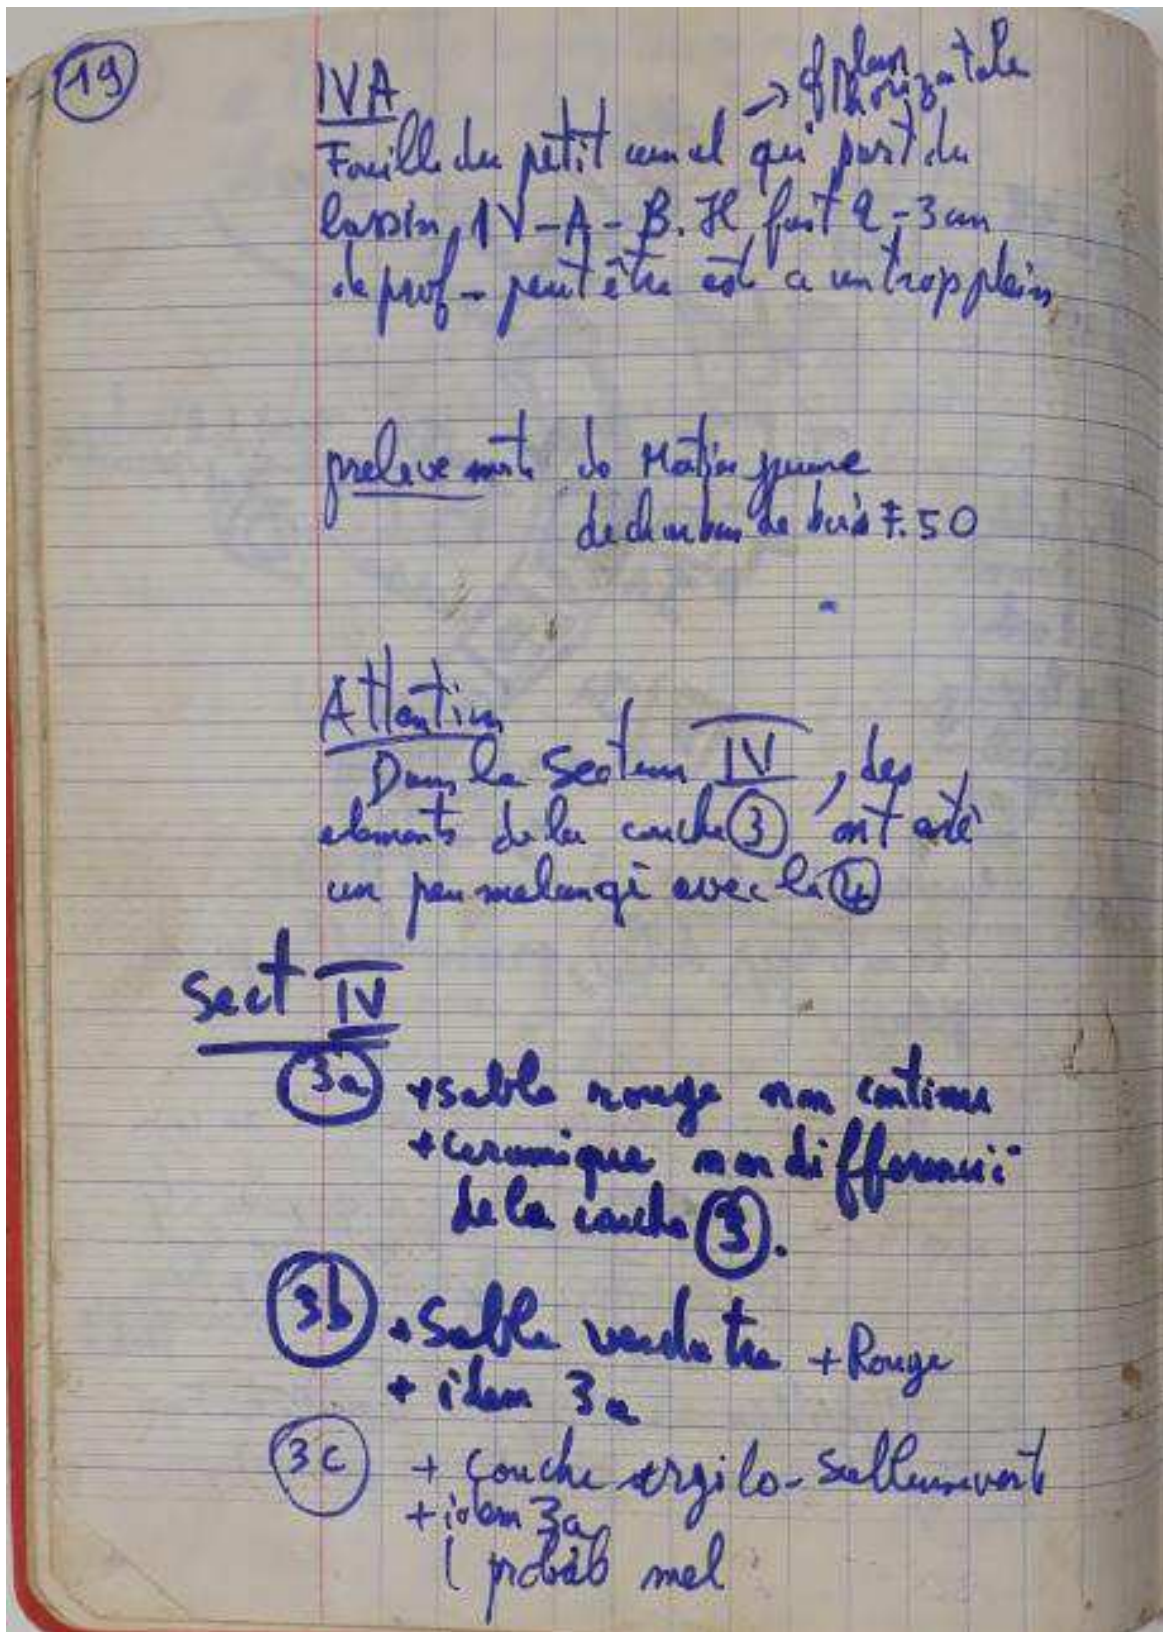 19
IVA
→ cf plan
horizontale
Fouille du petit canal qui part du
bassin IV-A-B. Il fait 2-3 cm
de prof - peut être est ce un trop plein
prelevements de Matière jaune
de charbon de bois F.50
Attention
Dans le Secteur IV, des
elements de la couche 3 ont été
un peu melangé avec la 4
Sect IV
3a + sable rouge non continu
+ ceramique non differencié
de la couche 3.
3b + Sable verdatre + Rouge
+ idem 3a
3c + couche argilo-sableuse verte
+ idem 3a
( probab mel